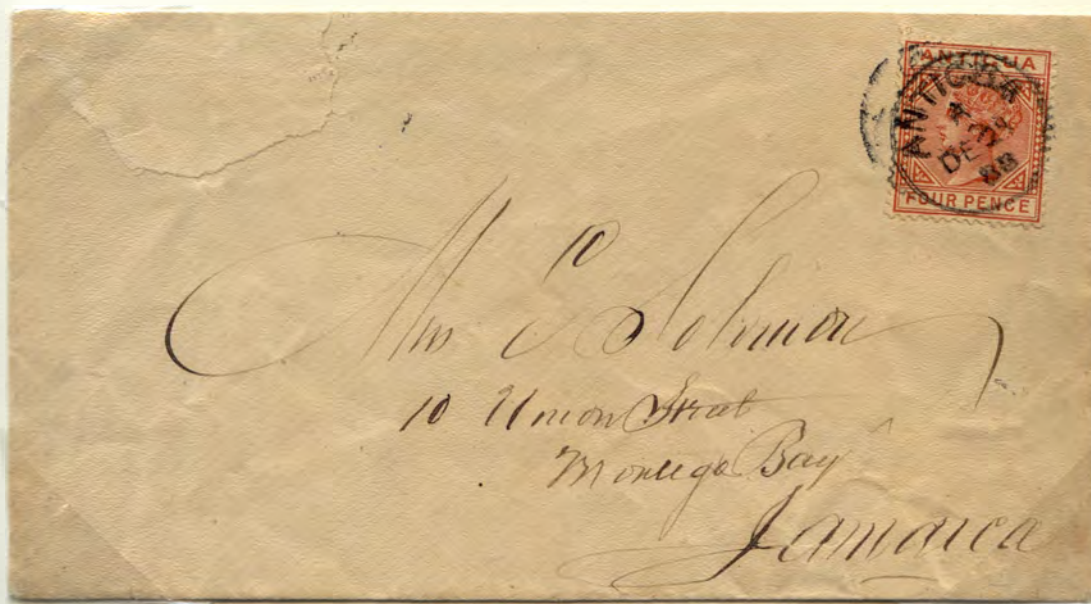 ANTIGUA
ANTIGUA
A
DE
88
FOUR PENCE
Mrs E Solomon
10 Union Street
Montego Bay
Jamaica